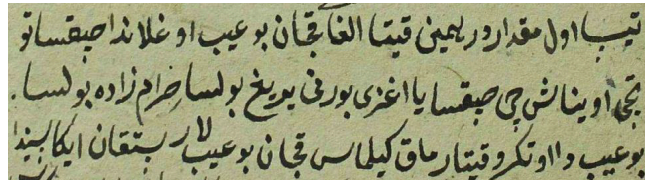 تیب اول مقدار ور یمین قیتا الغا قجان بو عیب اوغلاندا چیقسا تو
نجی اویناش چی چیقسا یا اغزی بورنی یریغ بولسا حرام زاده بولسا.
بو عیب دا اوتکرو قیتارماق کیلماس قجان بو عیب لار ساتقان ایکا سیندا